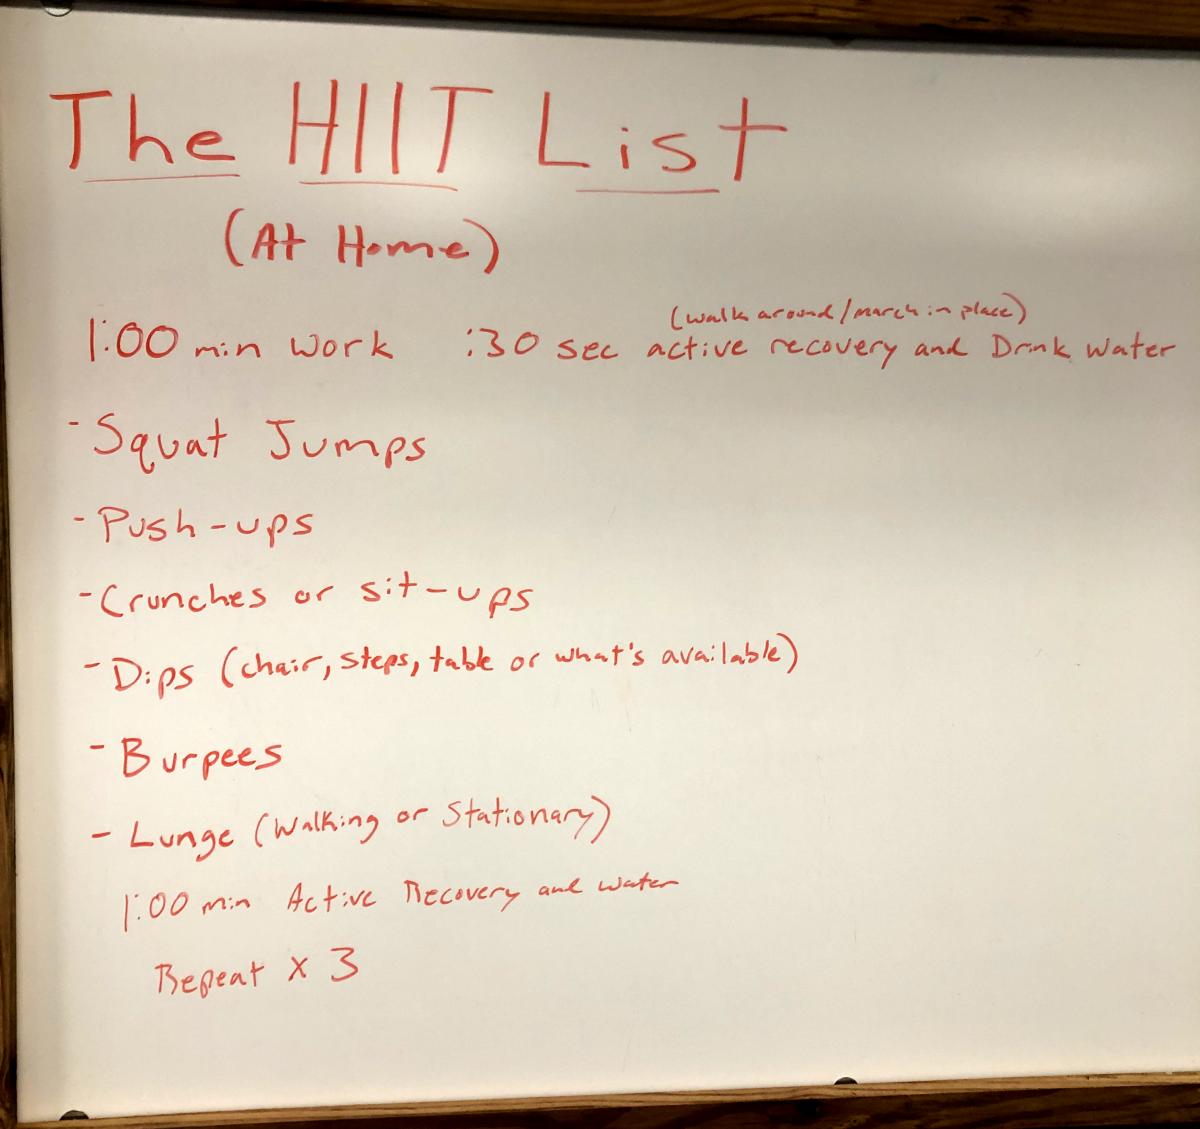 The HIIT List
(At Home)
(walk around/march in place)
1:00 min work :30 sec active recovery and Drink water
- Squat Jumps
- Push-ups
- Crunches or sit-ups
- Dips (chair, steps, table or what's available)
- Burpees
- Lunge (Walking or Stationary)
1:00 min Active Recovery and water
Repeat x 3